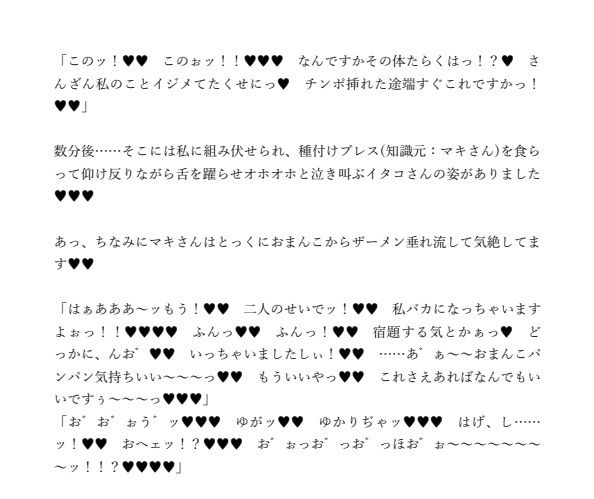 「このッ！♥♥　このぉッ！！♥♥♥　なんですかその体たらくはっ！？♥　さ
んざん私のことイジメてたくせにっ♥　チンポ挿れた途端すぐこれですかっ！
♥♥」
数分後……そこには私に組み伏せられ、種付けプレス(知識元：マキさん)を食ら
って仰け反りながら舌を躍らせオホオホと泣き叫ぶイタコさんの姿がありました
♥♥♥
あっ、ちなみにマキさんはとっくにおまんこからザーメン垂れ流して気絶してま
す♥♥
「はぁあああ～ッもう！♥♥　二人のせいでッ！♥♥　私バカになっちゃいます
よぉっ！！♥♥♥♥　ふんっ♥♥　ふんっ！♥♥　宿題する気とかぁっ♥　ど
っかに、んお゛♥♥　いっちゃいましたしぃ！♥♥　……あ゛ぁ～～おまんこパ
ンパン気持ちいい～～～っ♥♥　もういいやっ♥♥　これさえあればなんでもい
いですぅ～～～っ♥♥♥」
「お゛お゛ぉう゛ッ♥♥♥　ゆがッ♥♥　ゆかりぢゃッ♥♥♥　はげ、し……
ッ！♥♥　おへェッ！？♥♥♥　お゛ぉっお゛っお゛っほお゛ぉ～～～～～～～
～ッ！！？♥♥♥♥」